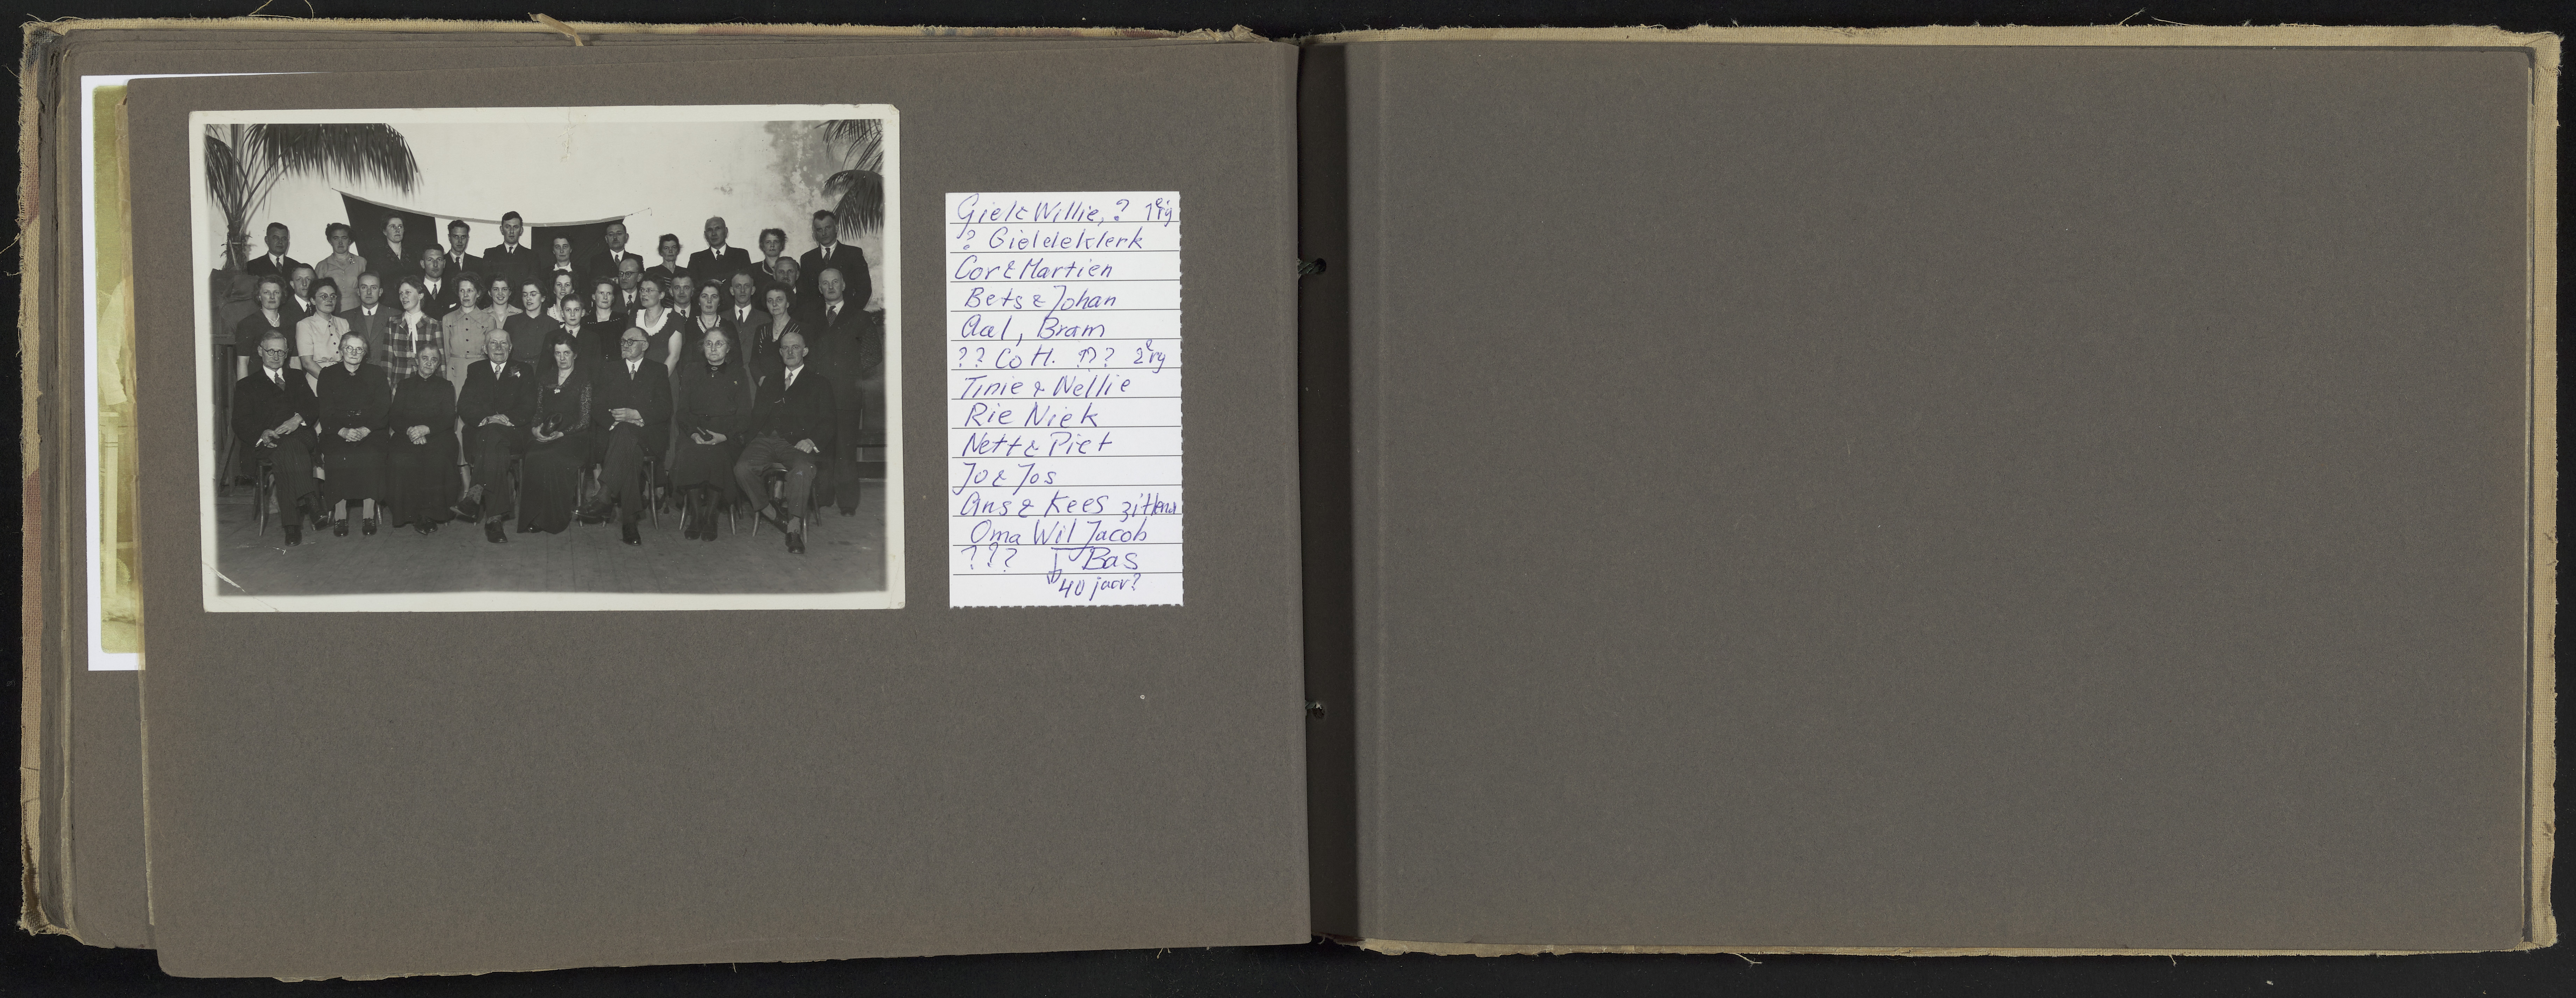 Giel & Willie, ? 1e rij
? Giel de klerk
Cor & Martien
Bets & Johan
Aal, Bram
?? Co H. ??? 2e rij
Tinie & Nellie
Rie Niek
Nett & Piet
Jo & Jos
Ans & Kees zittend
Oma Wil Jacob
??? Bas
40 jaar?